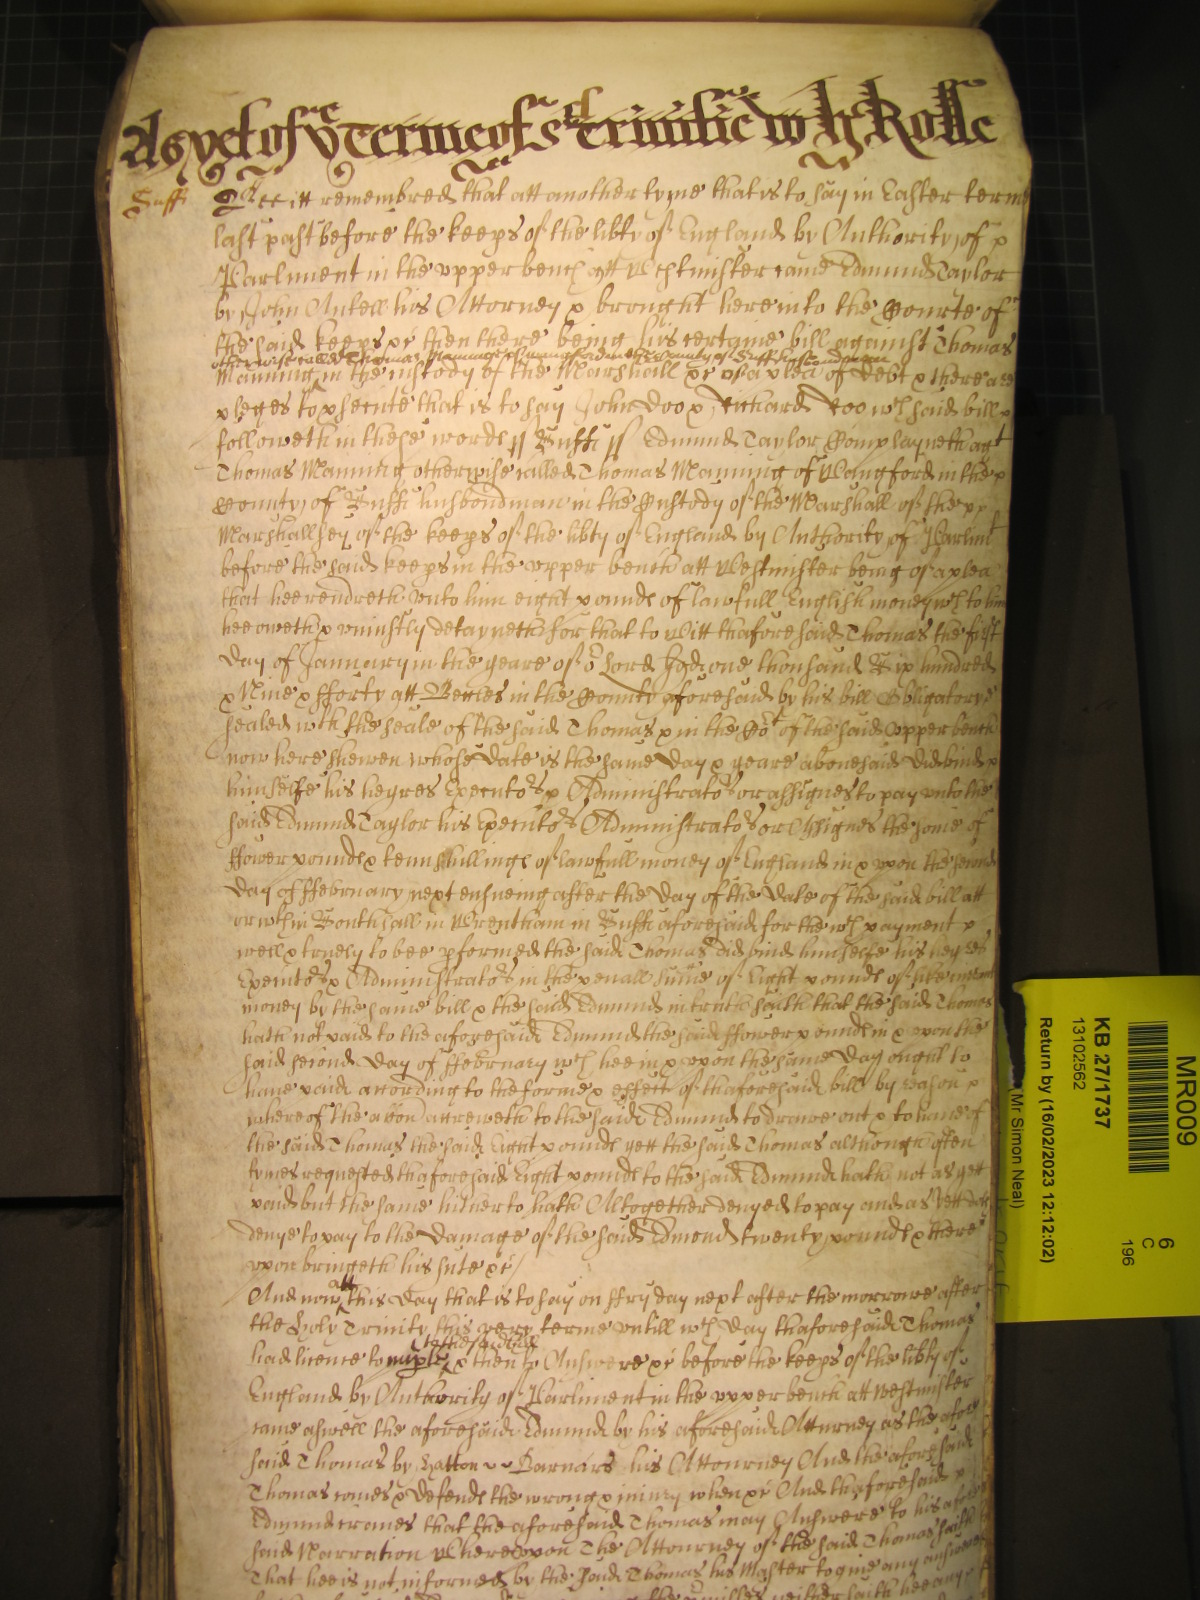 As yet of ye terme of s'ct Trinitie wth Rolle
Suff Bee itt remembred that att another tyme that is to say in Easter terme
last past before the keeps of the libty of England by Authority of p
Parliment in the vpper bench att Westminster came Edmund Taylor
by John Antell his Attorney & brought here into the Courte of
the said keeps &c then there being his certaine bill against Thomas
otherwise called Thomas Manninge of Wangford in the County of Suff husbondman
Manning in the custody of the Marshall &c of a plea of debt & there are
pleges to psecute that is to say John Doo & Richard Roo wch said bill
followeth in these words // Suff // Edmund Taylor Complayneth agt
Thomas Manning otherwise called Thomas Manning of Wangford in the
County of Suff husbondman in the Custody of the Marshall of the
Marshallsey of the keeps of the libty of England by Authority of Parlimt
before the said keeps in the vpper bench att Westminster being of a plea
that hee rendreth vnto him eight pounds of lawfull English money wch to him
hee oweth & vniustly detayneth for that to Witt thaforesaid Thomas the first
day of January in the yeare of or Lord God one thousand Six hundred
& Nine & fforty att Beccles in the County aforesaid by his bill Obligatory
sealed wth the seale of the said Thomas & in the Cort of the said Vpper bench
now here shewen whose date is the same day & yeare abouesaid did bind
himselfe his heyres Executors & Administrators or assignes to pay vnto the
said Edmund Taylor his Executors Administrators or Assignes the some of
ffower pounds & tenn shillings of lawfull money of England in & vpon the second
day of ffebruary next ensueing after the day of the date of the said bill att
or wthin Southall in Wrentham in Suff aforesaid for the wch payment
well & truely to bee pformed the said Thomas did bind himselfe his heyres
Executors & Administrators in the penall sume of Eight pounds of like
money by the same bill & the said Edmund in truth saith that the said Thomas
hath not paid to the aforesaid Edmund the said ffower pounds in & vpon the
said second day of ffebruary wch hee in & vpon the same day ought to
haue paid according to the forme & effect of thaforesaid bill by reason
whereof the accon accreweth to the said Edmund to drawe out & to haue of
the said Thomas the said Eight pounds yett the said Thomas although often
tymes requested thaforesaid Eight pounds to the said Edmund hath not as yett
paid but the same hitherto hath Altogether denyed to pay and as yett doth
denye to pay to the damage of the said Edmond twenty pounds & there
vpon bringeth his sute &c
And now att this day that is to say on ffryday next after the morrowe after
the Holy Trinity this very terme vntill wch day thaforesaid Thomas
to the said bill
had licence to imple & then to Answere &c before the keeps of the libty of
England by Authority of Parliment in the vpper bench att Westminster
came aswell the aforesaid Edmund by his aforesaid Attorney as the afore
said Thomas by Hatton Barnard his Attourney And the aforesaid
Thomas comes & defends the wrong & iniury when &c And thaforesaid
Edmund craues that the aforesaid Thomas may Answere to his afore
said Narration Wherevpon The Attourney of the said Thomas saith
That hee is not informed by the said Thomas his Master to giue any answere
MR009
6
C
196
KB 27/1737
13102562
Return by (16/02/2023 12:12:02)
(Mr Simon Neal)